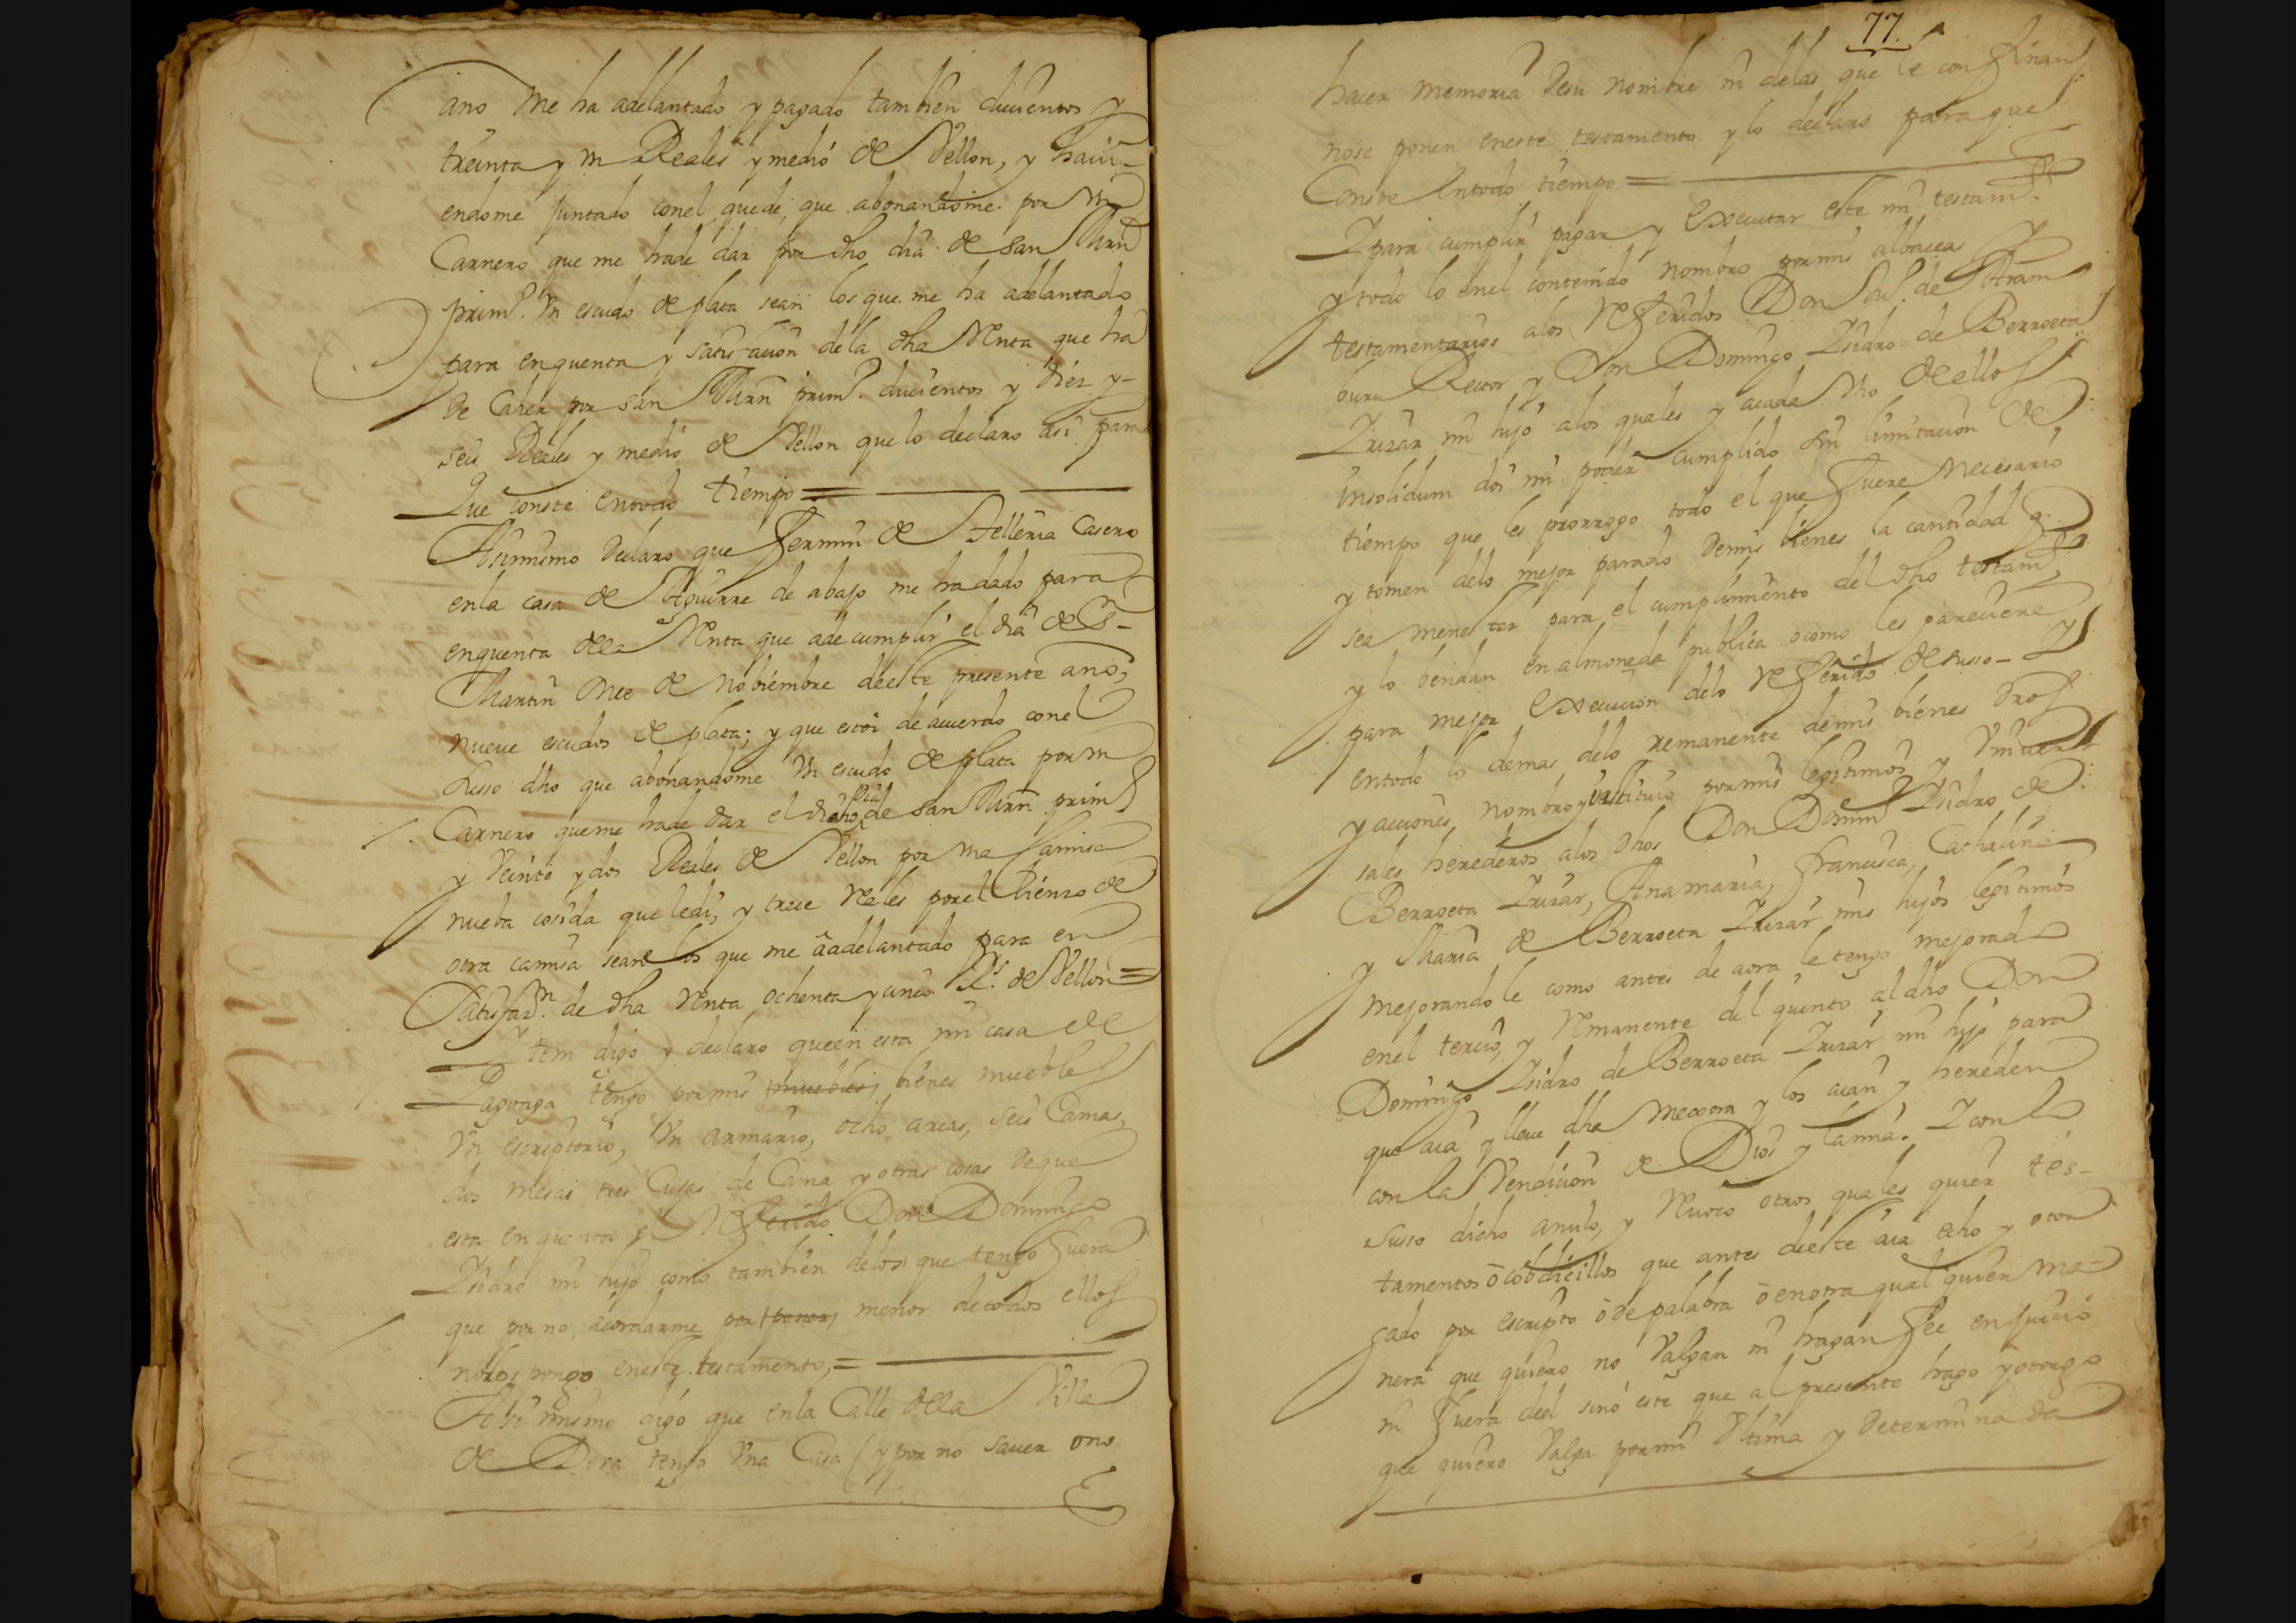 ano me ha adelantado y pagado tambien ducientos y
treinta y un Reales y medio de Vellon, y havi-
endome juntado conel quede, que abonandome por un
Carnero que me hade dar por dho dia de san Mrn
prim.º Un escudo de plata sean los que me ha adelantado
para enquenta y satisfacion dela dha Renta que ha
De Caher por san Mrn prim.º ducientos y diez y-
seis Reales y medio de Vellon que lo declaro asi para
Que conste entodo tiempo =
Asimismo declaro que Fermin de Telleria Casero
enla casa de Aguirre de abajo me ha dado para
enquenta dela Renta que ade cumplir el dia de Sn-
Martin Mes de nobiembre deeste presente año,
nueue escudos de plata; y que estoi de acuerdo conel
susso dho que abonandome Un escudo de plata por un
Carnero queme hade dar el dho dia de san Mrn prim.º
y Veinte y dos Reales de Vellon por una Camisa
nueba cosida que ledi, y trece Reales porel Lienzo de
otra camisa sean los que me a adelantado para en
Satisfaz.n de dha Renta ochenta y cinco R.s de Vellon =
Ytem digo y declaro queen esta mi casa de
Lagoaga tengo pormis muebles bienes muebles
Un escriptorio, Un armario, ocho arcas, seis Camas,
dos mesas tres Cujas de Cama y otras cosas deque
esta enquenta el Referido Don Domingo
Ysidro mi hijo como tambien delos que tengo fuera
que por no acordarme por menor detodos ellos
nolos pongo eneste testamento, =
Asi mismo digo que enla Calle dela Villa
de Dera tengo Una Casa (y por no saver ono
77.
hacer memoria desu nombre ni delas que le confinan
nose ponen eneste testamento y lo declaro para que
Conste entodo tiempo =
Y para cumplir pagar y Executar este mi testam.to
y todo lo enel contenido nombro pormis albaceas y
testamentarios alos Referidos Don de Aram
buru Rector y Don Domingo Ysidro de Berroeta
Yrizar mi hijo alos quales y acada Uno de ellos
insolidum doi mi poder cumplido sin limitacion de
tiempo que les prorrogo todo el que fuere necesario
y tomen delo mejor parado demis bienes la cantidad q.
sea menester para el cumplimiento del dho testam.to
y lo bendan en almoneda publica o como les pareciere
para mejor Execucion delo Referido desusso- Y
entodo lo demas delo remanente demis bienes dros
y acciones, nombro y instituio pormis legitimos y Univer
sales herederos alos dhos Don Doming Ysidro de
Berroeta Yrizar, Ana maria, francisca, Cathalina
y Maria de Berroeta Yrizar mis hijos legitimos
mejorandole como antes de aora le tengo mejorado
enel tercio, y Remanente del quinto, al dho Don
Domingo Ysidro de Berroeta Yrizar mi hijo para
que aia y lleue dha Mexora y los aian y hereden
con la Vendicion de Dios y lamia. Y con lo
susso dicho anulo, y Reuoco otros quales quier tes-
tamentos o cobdicillos que antes deeste aia echo y otor
gado por escripto o de palabra o en otra qual quier ma-
nera que quiero no Valgan ni hagan fee en juicio
ni fuera deel sino este que al presente hago y otorgo
que quiero Valga pormi Ultima y determinada